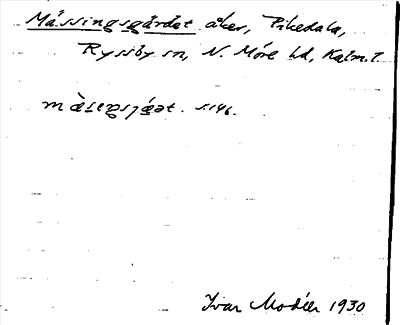 Mässingsgärdet åker, Pikedala,
Ryssby sn, N. Möre hd, Kalm. l.
s. 146.
Ivar Modéer 1930